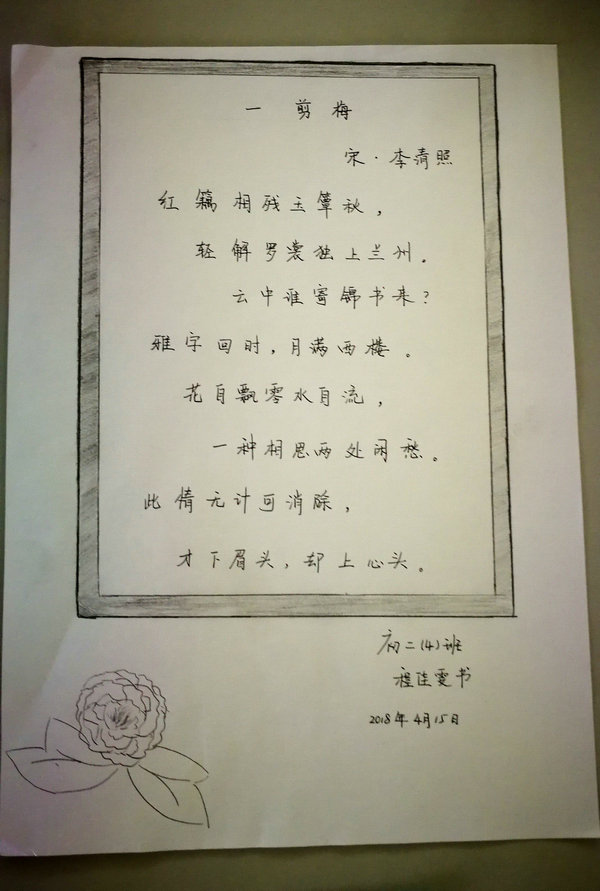 一剪梅
宋·李清照
红藕相残玉簟秋，
轻解罗裳独上兰州。
云中谁寄锦书来？
雅字回时，月满西楼。
花自飘零水自流，
一种相思两处闲愁。
此情无计可消除，
才下眉头，却上心头。
初二(4)班
程佳雯书
2018年4月15日